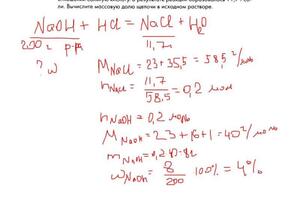 ли. Вычислите массовую долю щелочи в исходном растворе.
NaOH + HCl = NaCl + H₂O
200 г р-ра 11,7 г
? ω
M NaCl = 23 + 35,5 = 58,5 г/моль
n NaCl = 11,7 / 58,5 = 0,2 моль
n NaOH = 0,2 моль
M NaOH = 23 + 16 + 1 = 40 г/моль
m NaOH = 0,2·40 = 8 г
ω NaOH = 8 / 200 · 100% = 4%